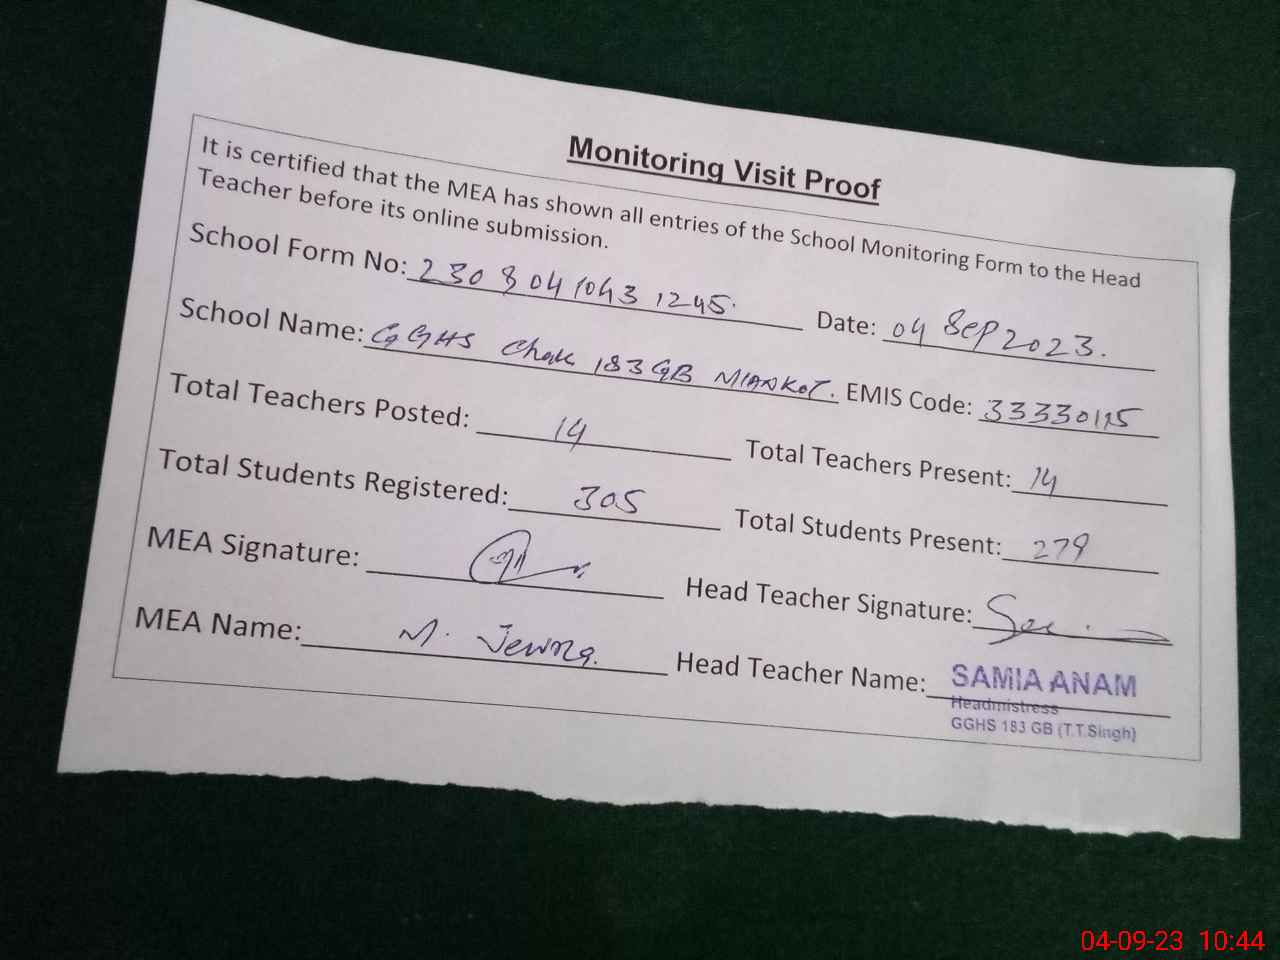 Monitoring Visit Proof
It is certified that the MEA has shown all entries of the School Monitoring Form to the Head
Teacher before its online submission.
School Form No: 2308041043 1245. Date: 04 Sep 2023.
School Name: GGHS Chak 183 GB MIANKOT. EMIS Code: 33330115
Total Teachers Posted: 14 Total Teachers Present: 14
Total Students Registered: 305 Total Students Present: 279
MEA Signature: Head Teacher Signature:
MEA Name: M. Head Teacher Name: SAMIA ANAM
Headmistress
GGHS 183 GB (T.T.Singh)
04-09-23 10:44